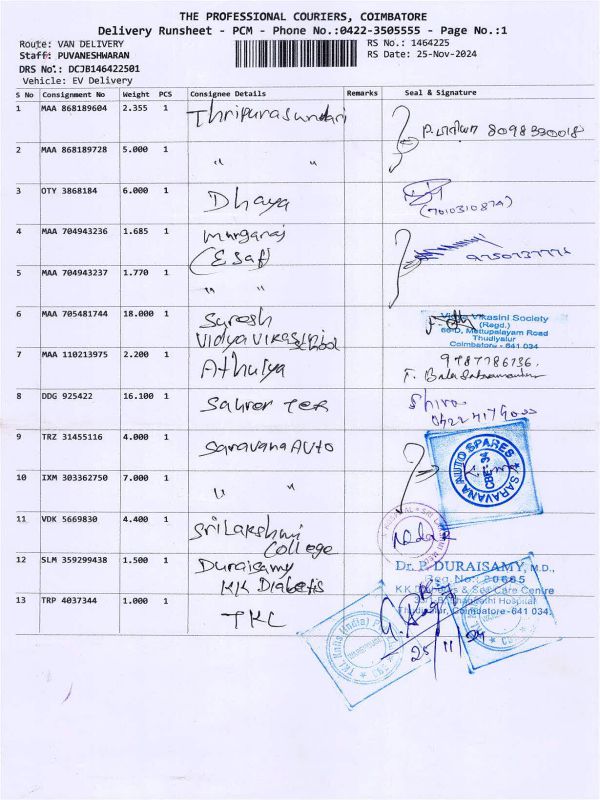 THE PROFESSIONAL COURIERS, COIMBATORE
Delivery Runsheet - PCM - Phone No.:0422-3505555 - Page No.:1
Route: VAN DELIVERY
RS No.: 1464225
Staff: PUVANESHWARAN
RS Date: 25-Nov-2024
DRS No.: DCJB146422501
Vehicle: EV Delivery
S No Consignment No Weight PCS Consignee Details Remarks Seal & Signature
1 MAA 868189604 2.355 1 Thripurasundari 8098330018
2 MAA 868189728 5.000 1 " "
3 OTY 3868184 6.000 1 Dhaya
(7010310879)
4 MAA 704943236 1.685 1 Murgaraj
(ESaf)
5 MAA 704943237 1.770 1 " "
6 MAA 705481744 18.000 1 Suresh
Vidya Vikasini School
Vidya Vikasini Society
(Regd.)
Mettupalayam Road
Thudiyalur
Coimbatore - 641 034
7 MAA 110213975 2.200 1 Athulya
9787786736.
8 DDG 925422 16.100 1
Shiva
9 TRZ 31455116 4.000 1 Saravana Auto
SARAVANA AUTO SPARES
CBE-34
10 IXM 303362750 7.000 1 " "
11 VDK 5669830 4.400 1 Sri Lakshmi
College
12 SLM 359299438 1.500 1 Duraisamy
KK Diabetis
Dr. P. DURAISAMY, M.D.,
Reg. No.: 20665
Care Centre
Hospital
Thudiyalur, Coimbatore-641 034.
13 TRP 4037344 1.000 1 TKL
25/11/24